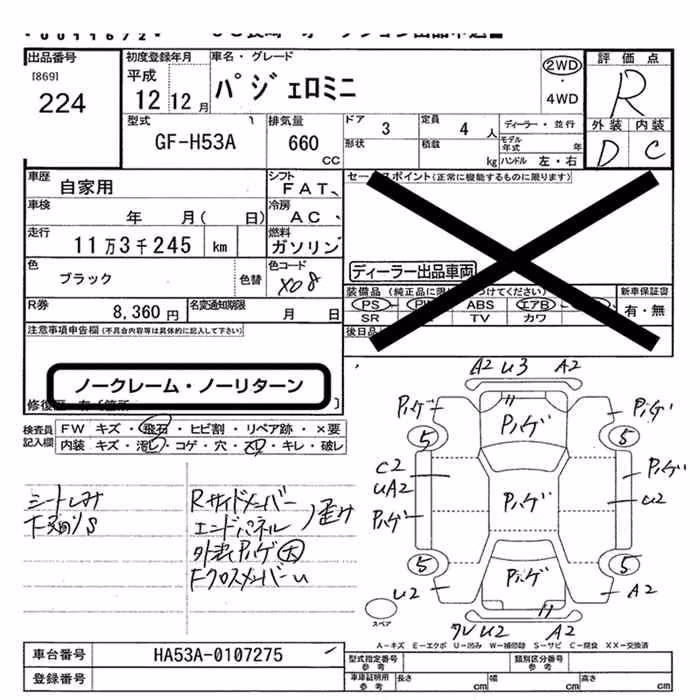 出品番号
[869]
224
初度登録年月
平成
12年12月
車名・グレード
パジェロミニ
2WD
・
4WD
評価点
R
外装 内装
D C
型式
GF-H53A
排気量
660
CC
ドア
3
定員
4 人
形状
積載
kg
ディーラー・並行
モデル年式 年
ハンドル 左・右
車歴
自家用
シフト
FAT
車検
年 月( 日)
冷房
AC
走行
11万3千245 km
燃料
ガソリン
色
ブラック
色替
色コード
X08
R券
8,360円
名変通知期限
月 日
セールスポイント(正常に機能するものに限ります)
ディーラー出品車両
PS
ABS
エアB
SR
TV
カワ
新車保証書
有・無
後日品
注意事項申告欄(不具合内容等は具体的に記入して下さい)
ノークレーム・ノーリターン
検査員記入欄
FW キズ・飛石・ヒビ割・リペア跡・×要
内装 キズ・汚レ・コゲ・穴・スレ・キレ・破レ
シートしみ
下廻りS
Rサイドメンバー
エンドパネル
歪み
外装ハゲ大
FクロスメンバーU
A2 U3 A2
ハゲ
ハゲ
ハゲ
5
5
C2
UA2
ハゲ
ハゲ
ハゲ
U2
5
5
ハゲ
U2
A2
スペア
U2
A2
A-キズ E-エクボ U-凹み W-補修跡 S-サビ C-腐食 XX-交換済
車台番号
HA53A-0107275
登録番号
型式指定番号
参考
類別区分番号
参考
車庫証明用
参考
長さ cm
幅 cm
高さ cm